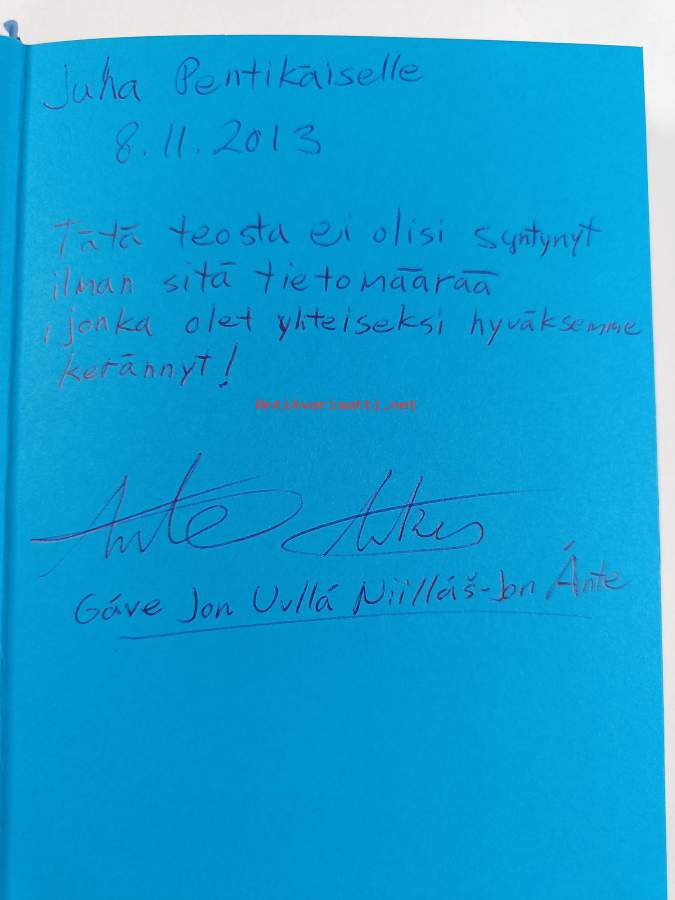 Juha Pentikäiselle
8.11.2013
Tätä teosta ei olisi syntynyt
ilman sitä tietomäärää
, jonka olet yhteiseksi hyväksemme
kerännyt!
Antikvariaatti.net
Ante Aikas
Gáve Jon Uvllá Niilláš-Jon Ánte